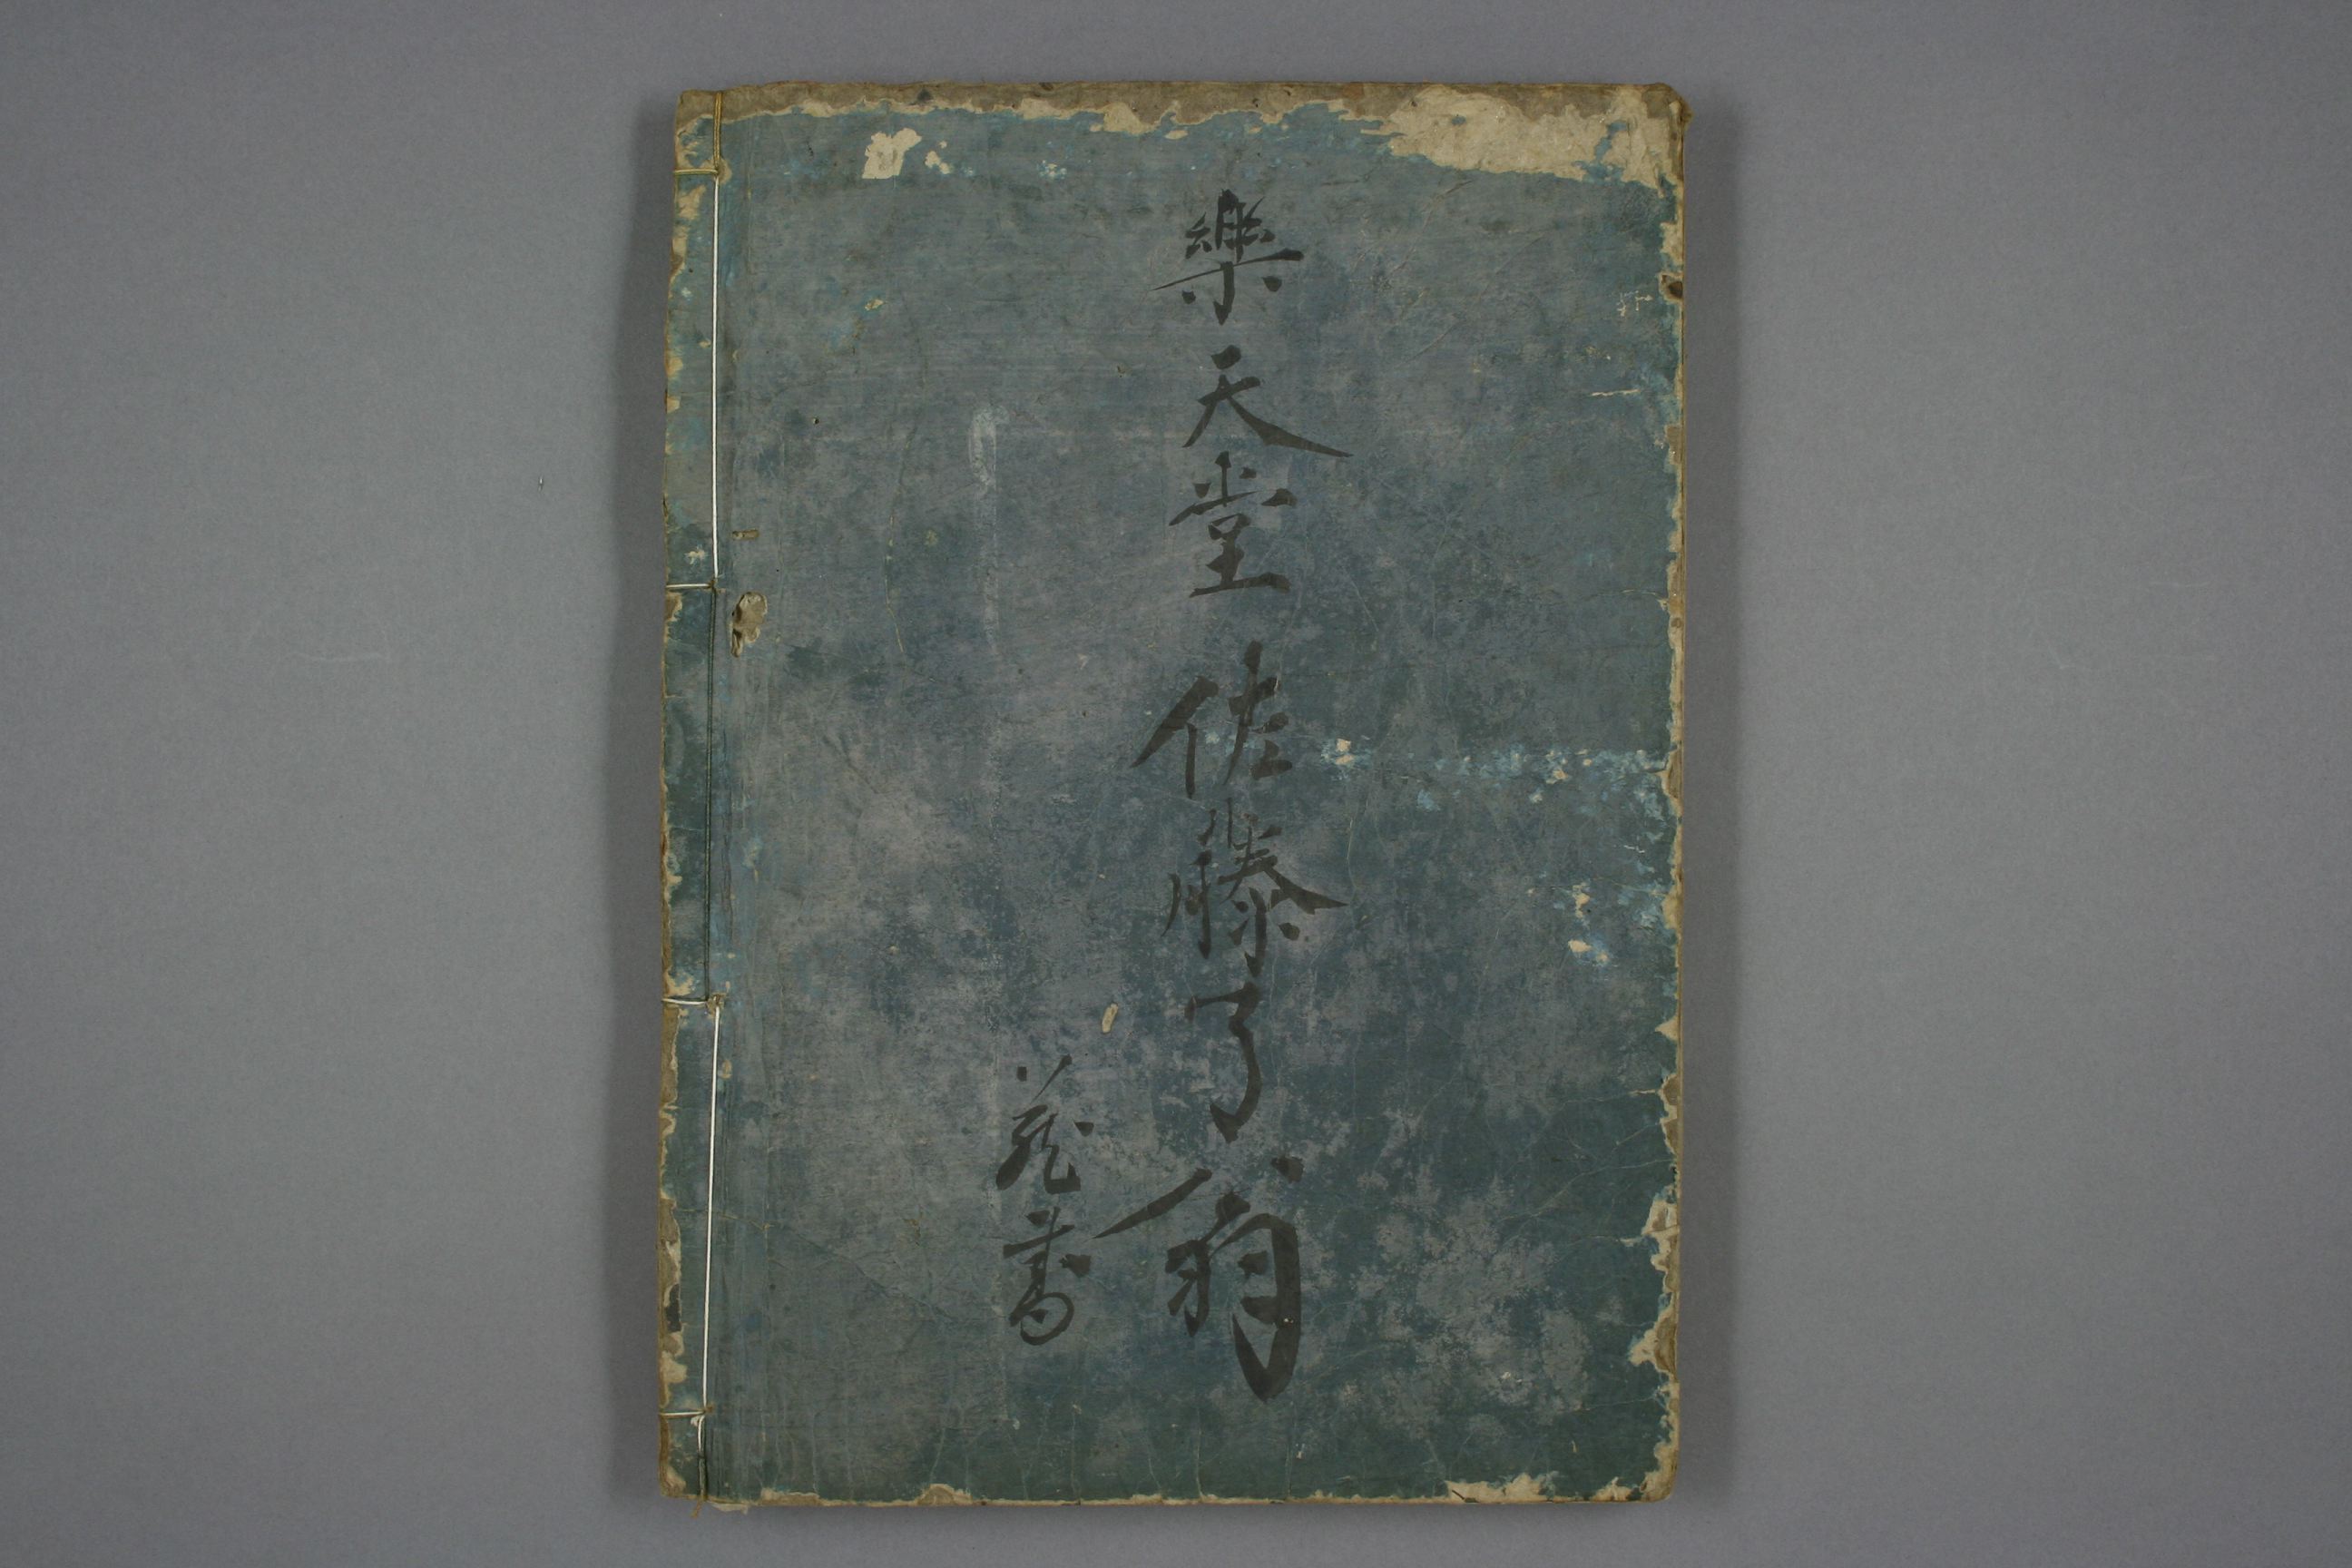 樂天堂佐藤了翁
蔵書